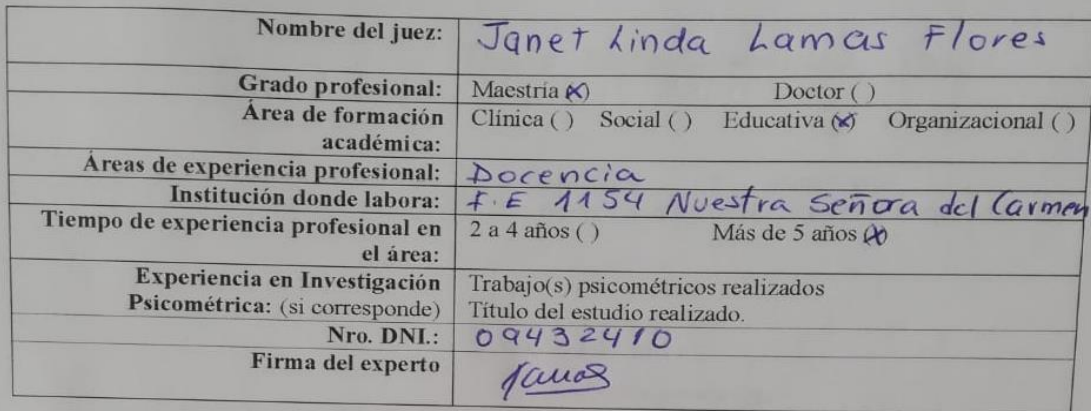 Nombre del juez: Janet Linda Lamas Flores
Grado profesional: Maestría (x) Doctor ( )
Área de formación académica: Clínica ( ) Social ( ) Educativa (x) Organizacional ( )
Áreas de experiencia profesional: Docencia
Institución donde labora: I.E 1154 Nuestra Señora del Carmen
Tiempo de experiencia profesional en el área: 2 a 4 años ( ) Más de 5 años (x)
Experiencia en Investigación Psicométrica: (si corresponde) Trabajo(s) psicométricos realizados
Título del estudio realizado.
Nro. DNI.: 09432410
Firma del experto